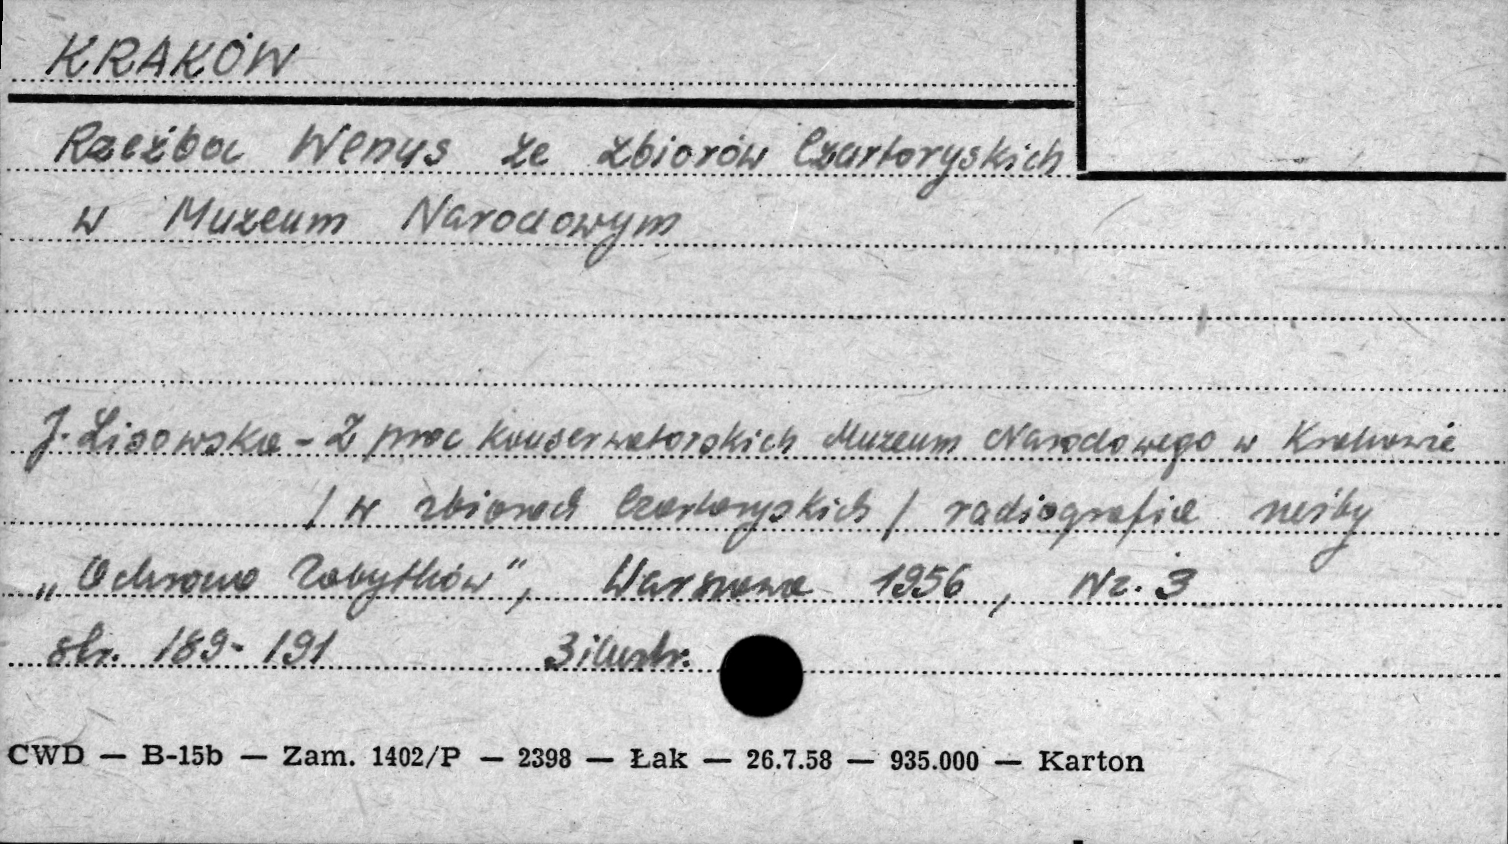 KRAKÓW
Rzeźba Wenus ze zbiorów Czartoryskich
w Muzeum Narodowym
J. Lisowska - Z prac konserwatorskich Muzeum Narodowego w Krakowie
/ w zbiorach Czartoryskich / radiografia rzeźby
„Ochrona Zabytków", Warszawa 1956, Nr. 3
str. 189-191 3 ilustr.
CWD — B-15b — Zam. 1402/P — 2398 — Łak — 26.7.58 — 935.000 — Karton